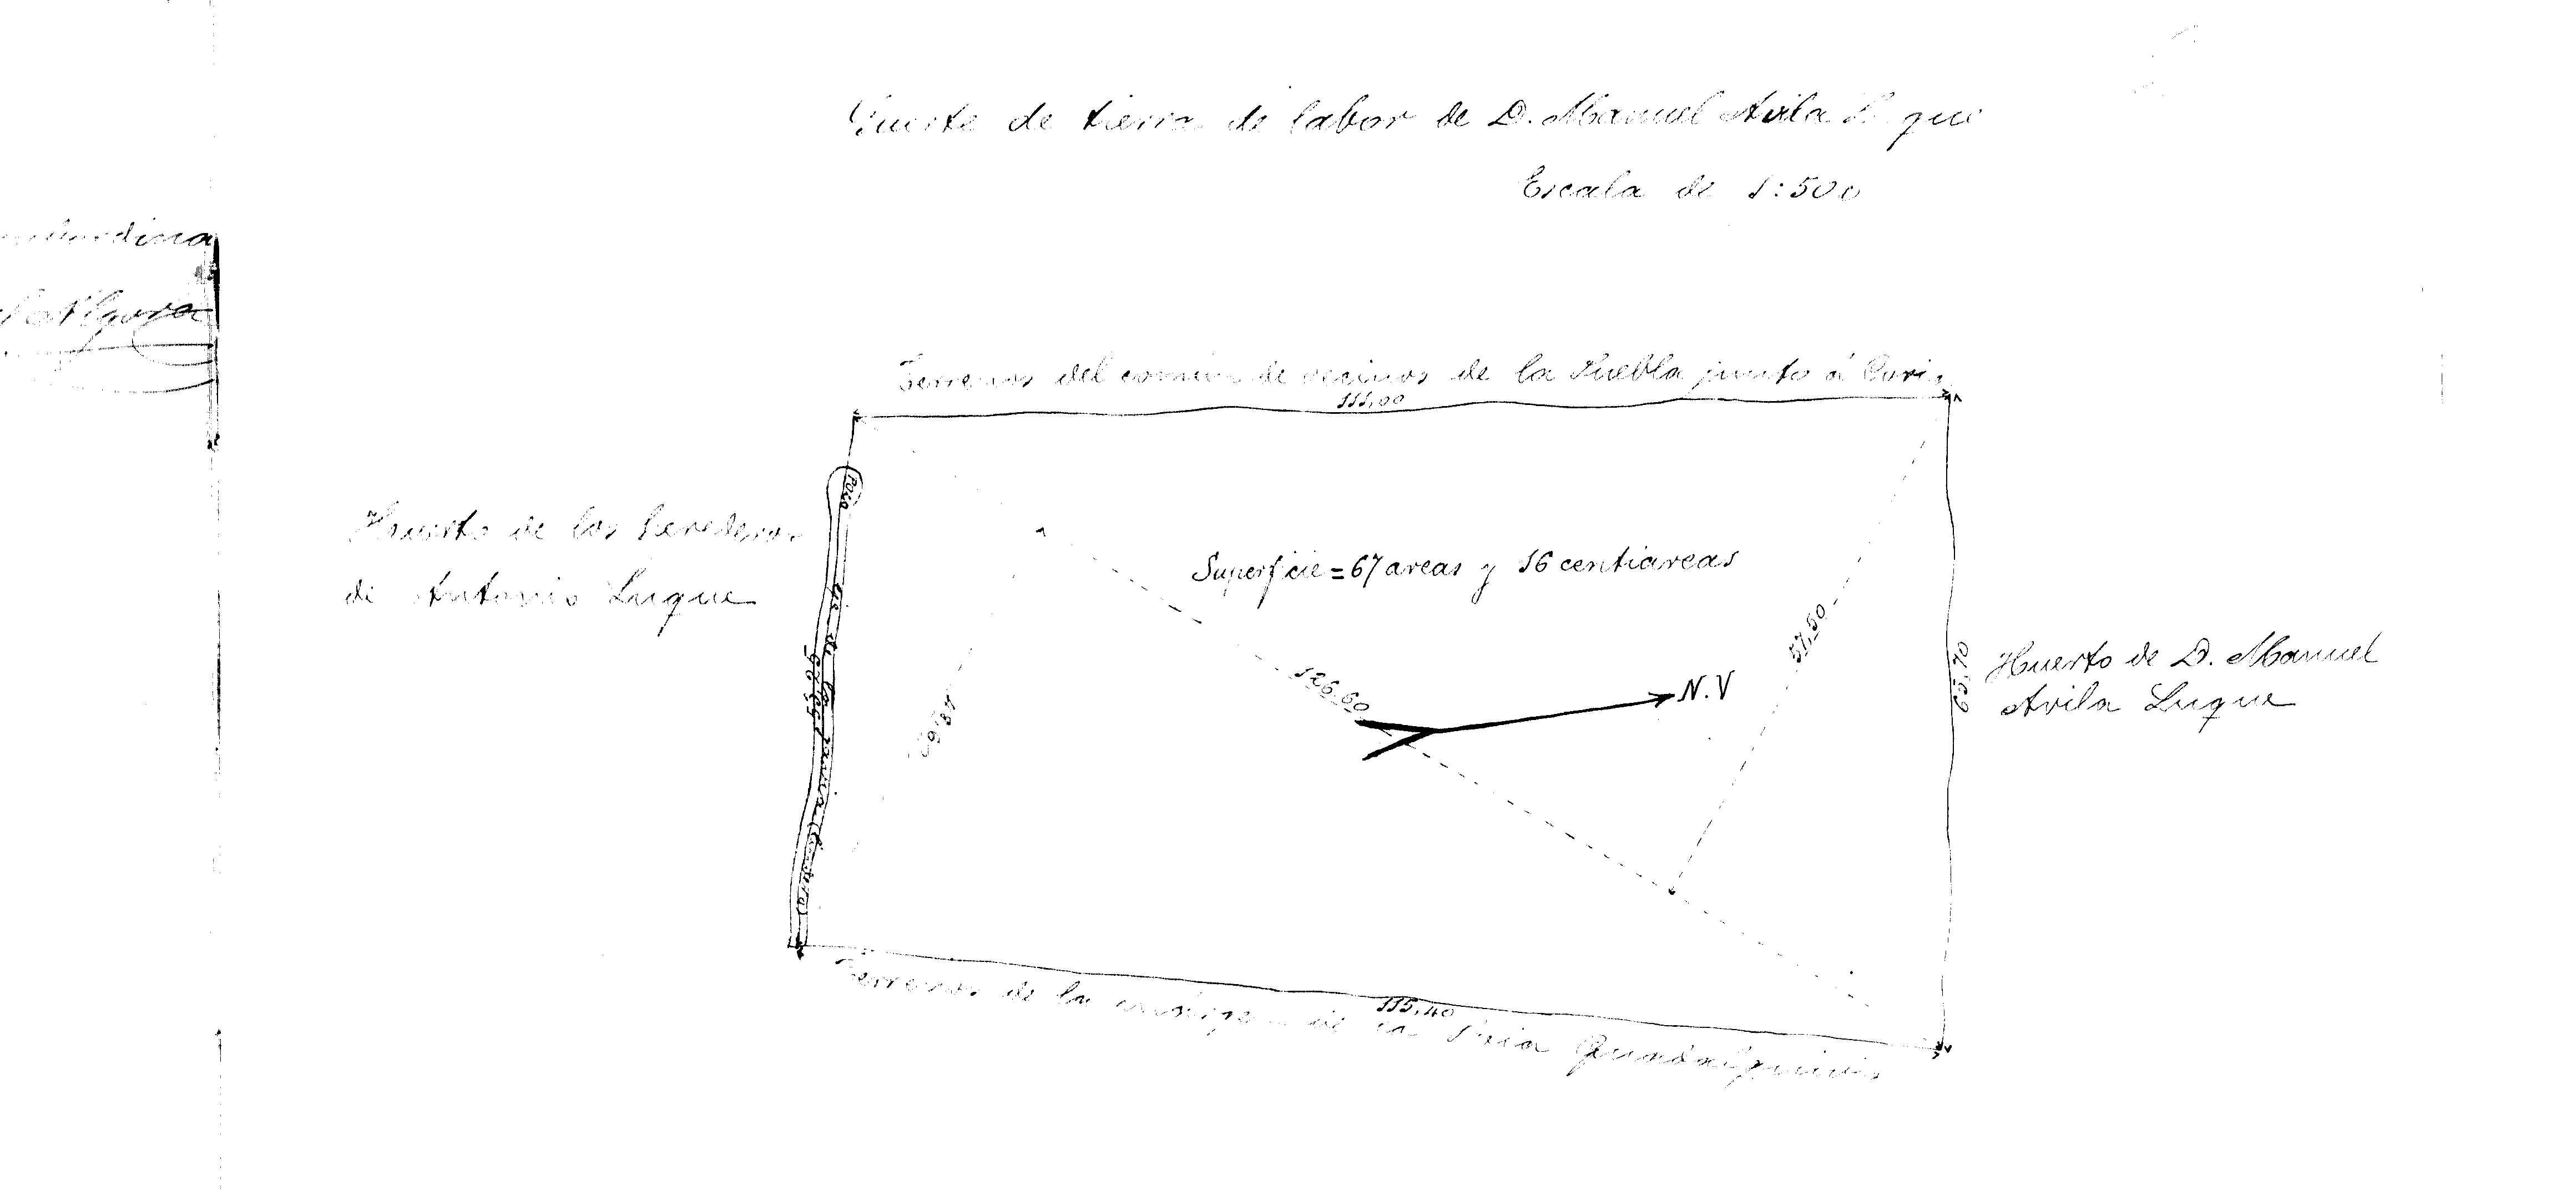 Suerte de tierra de labor de D. Manuel Avila Luque
Escala de 1:500
Terrenos del comun de vecinos de la Puebla junto á Coria
111,00
Pozo
Huerto de los herederos
de Antonio Luque
Superficie = 67 areas y 16 centiareas
126,60
57,50
N.V
65,70
Huerto de D. Manuel
Avila Luque
115,40
Terrenos de la de la Guadalquivir